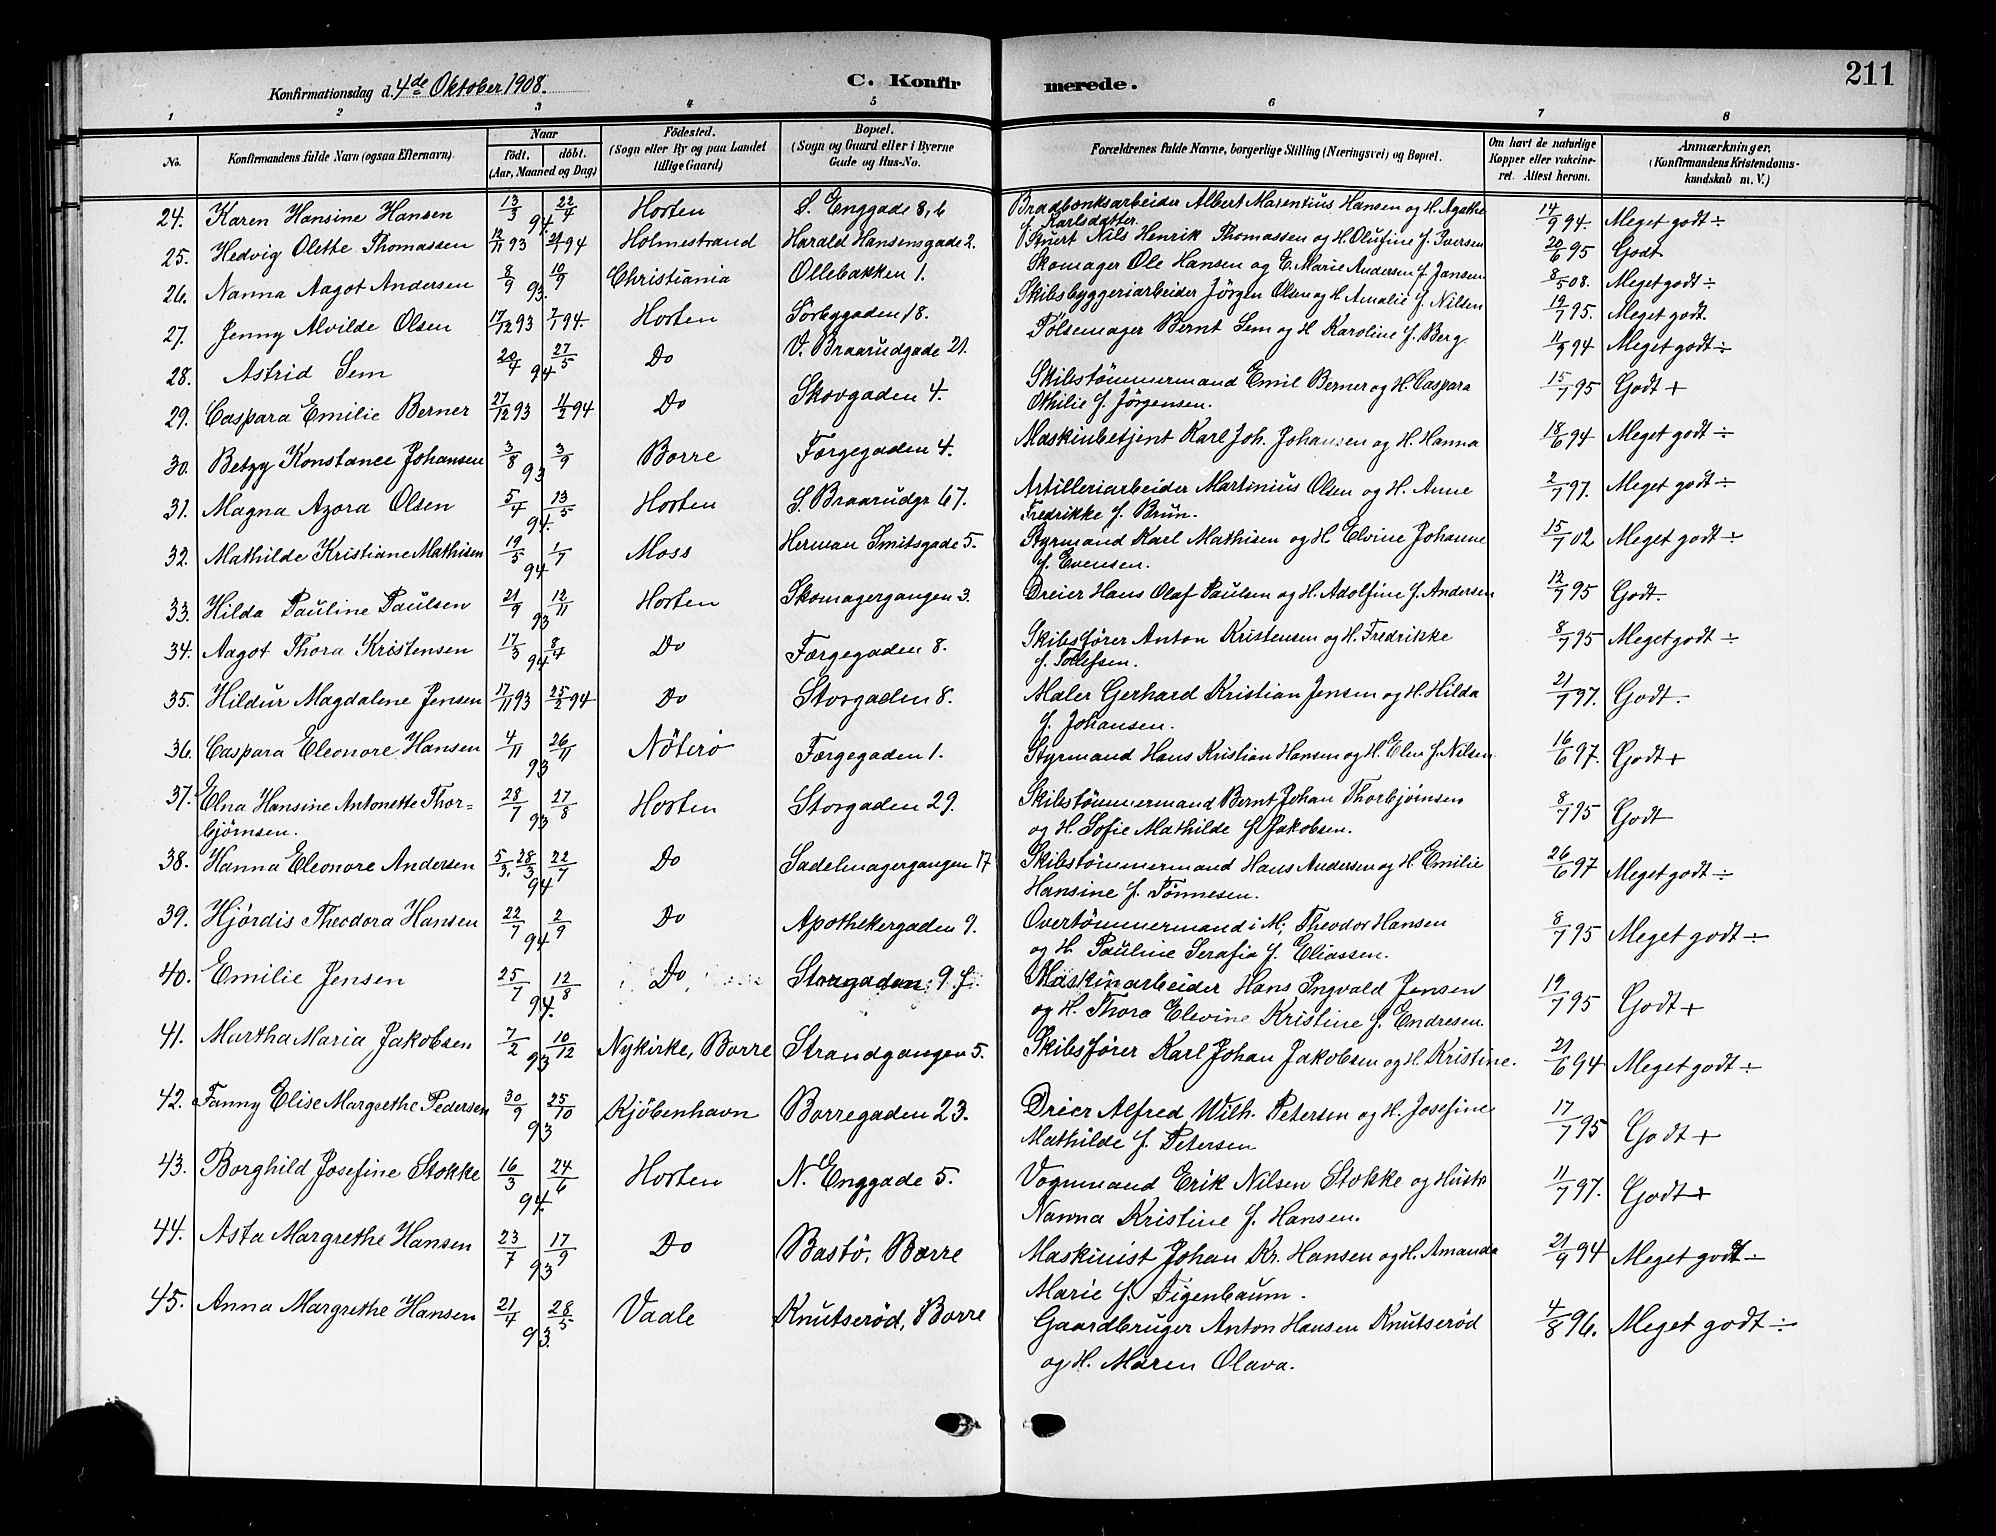 211
Konfirmationsdag d. 4de Oktober 1908.
C. Konfir merede.
1 2 3 4 5 6 7 8
No. Konfirmandens fulde Navn (ogsaa Efternavn). Naar født. døbt. (Aar, Maaned og Dag) Fødested. (Sogn eller By og paa Landet tillige Gaard) Bopæl. (Sogn og Gaard eller i Byerne Gade og Hus-No. Forældrenes fulde Navne, borgerlige Stilling (Næringsvei) og Bopæl. Om havt de naturlige Kopper eller vakcineret. Attest herom. Anmærkninger. (Konfirmandens Kristendomskundskab m. V.)
24. Karen Hansine Hansen 13/3 22/4 94. Horten S. Enggade 8, b Arbeider Albert Marentius Hansen og H. Agathe 14/9 94. Meget godt ÷
f. Karlsdatter.
25. Hedvig Olette Thomassen 12/11 93 94 Holmestrand Harald Hansensgade 2. Stuert Nils Henrik Thomassen og H. Olufine f. Iversen 20/6 95 Godt
26. Nanna Aagot Andersen 8/9 10/9 93. Christiania Ollebakken 1. Skomager Ole Hansen og E. Marie Andersen f. Jansen 8/5 08. Meget godt ÷
27. Jenny Alvilde Olsen 17/12 93 7/1 94. Horten Sørbygaden 18. Skibsbyggeriarbeider Jörgen Olsen og H. Amalie f. Nilsen 19/7 95. Meget godt.
28. Astrid Sem 20/4 27/5 94 Do V. Braarudgade 21. Pölsemager Bernt Sem og H. Karoline f. Berg 11/9 94 Meget godt ÷
29. Caspara Emilie Berner 27/12 93 11/2 94 Do Skovgaden 4. Skibstömmermand Emil Berner og H. Caspara 15/7 95 Godt +
Othilie f. Jörgensen.
30. Betzy Konstance Johansen 3/8 3/9 93 Borre Færgegaden 4. Maskinbetjent Karl Joh. Johansen og H. Hanna 18/6 94 Meget godt ÷
31. Magna Azora Olsen 5/4 13/5 94. Horten S. Braarudgr 67. Artilleriarbeider Martinius Olsen og H. Anne 2/7 97. Meget godt ÷
Fredrikke f. Brün.
32. Mathilde Kristiane Mathisen 19/5 1/7 94 Moss Herman Smitsgade 5. Styrmand Karl Mathisen og H. Elvine Johanne 15/7 02 Meget godt ÷
f. Evensen.
33. Hilda Pauline Paulsen 21/9 12/11 93 Horten Skomagergangen 3. Dreier Hans Olaf Paulsen og H. Adolfine f. Andersen 12/7 95 Godt.
34. Aagot Thora Kristensen 17/3 8/4 94 Do Færgegaden 8. Skibsfører Anton Kristensen og H. Fredrikke 8/7 95 Meget godt ÷
f. Tollefsen.
35. Hildur Magdalene Jensen 17/11 93 25/2 94 Do Storgaden 8. Maler Gerhard Kristian Jensen og H. Hilda 21/7 97. Godt.
f. Johansen.
36. Caspara Eleonore Hansen 4/11 26/11 93 Nöterö Færgegaden 1. Styrmand Hans Kristian Hansen og H. Elen f. Nilsen 16/6 97. Godt +
37. Elna Hansine Antonette Thor= 28/7 27/8 93 Horten Storgaden 29. Skibstömmermand Bernt Johan Thorbjørnsen 8/7 95 Godt
bjørnsen. og H. Sofie Mathilde f. Jakobsen.
38. Hanna Eleonore Andersen 5/3, 28/3 22/7 94 Do Sadelmagergangen 17 Skibstömmermand Hans Andersen og H. Emilie 26/6 97 Meget godt ÷
Hansine f. Tönnesen.
39. Hjördis Theodora Hansen 22/7 2/9 94 Do Apothekergaden 9. Overtömmermand i M. Theodor Hansen 8/7 95 Meget godt ÷
og H. Pauline Serafia f. Eliassen.
40. Emilie Jensen 25/7 12/8 94. Do Storgaden 9 f. Maskinarbeider Hans Ingvald Jensen 19/7 95 Godt +
og H. Thora Elevine Kristine f. Endresen.
41. Martha Maria Jakobsen 7/2 10/12 93 Nykirke, Borre Strandgangen 5. Skibsfører Karl Johan Jakobsen og H. Kristine. 21/6 94 Meget godt ÷
42. Fanny Elise Margrethe Pedersen 30/9 25/10 93 Kjöbenhavn Borregaden 23. Dreier Alfred Wilh. Petersen og H. Josefine 17/7 95 Godt +
Mathilde f. Petersen
43. Borghild Josefine Stokke 16/3 24/6 94. Horten N. Enggade 5. Vognmand Erik Nilsen Stokke og Hustr 11/7 97. Godt +
Nanna Kristine f. Hansen.
44. Asta Margrethe Hansen 23/7 17/9 93 Do Bastö, Borre Maskinist Johan Kr. Hansen og H. Amanda 21/9 94 Meget godt ÷
Marie f. Figenbaum.
45. Anna Margrethe Hansen 21/4 28/5 93. Vaale Knutserød, Borre Gaardbruger Anton Hansen Knutserød 4/8 96. Meget godt ÷
og H. Maren Olava.